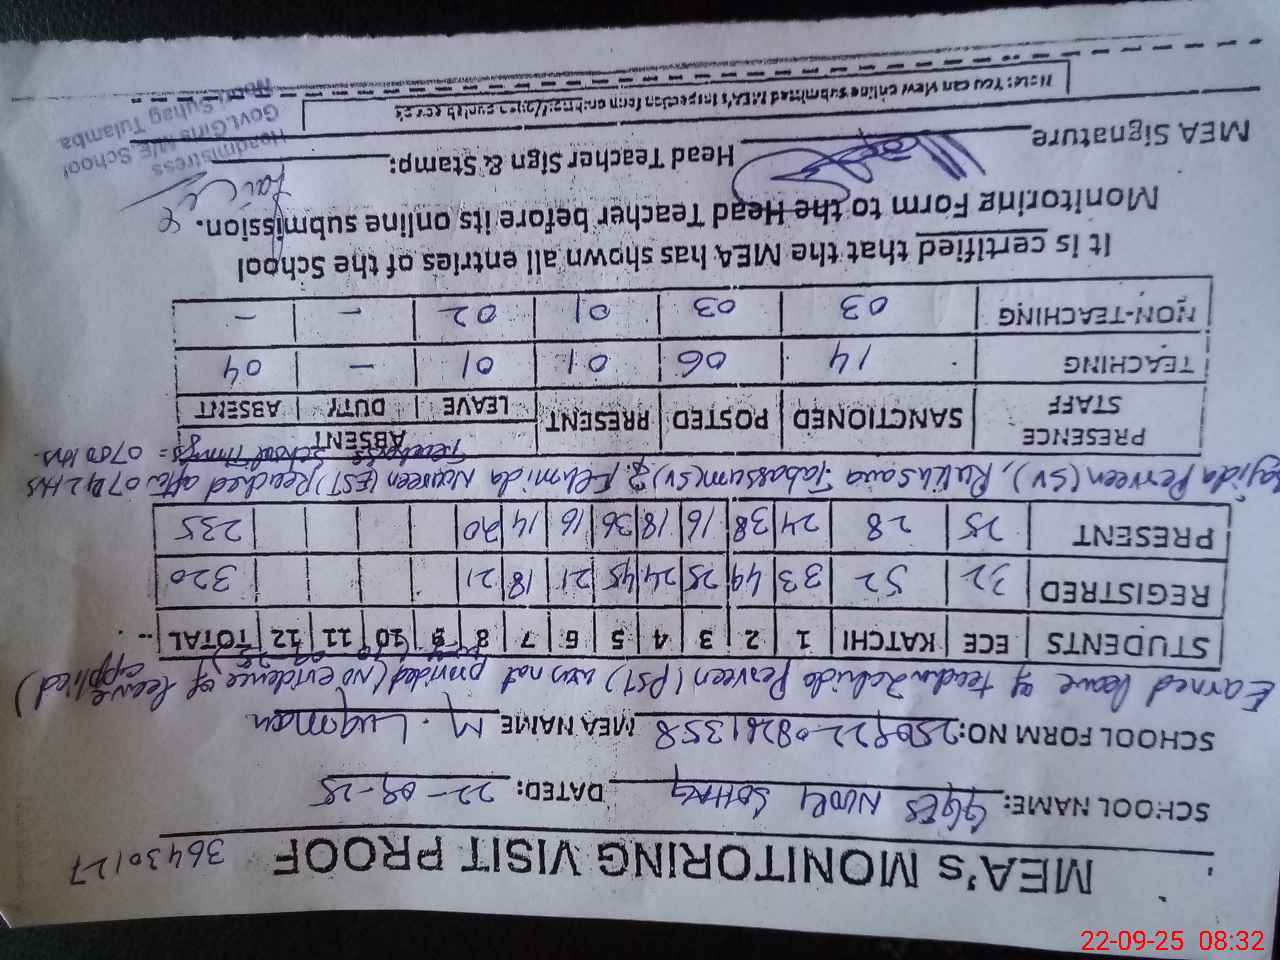 MEA's MONITORING VISIT PROOF 36430127
SCHOOL NAME: GGES NOORI SOHAG DATED: 22-09-25
SCHOOL FORM NO: 250922-08261358 MEA NAME M. Luqman
Earned leave of teacher Zahida Perveen (PST) was not provided (No evidence of leave applied)
STUDENTS ECE KATCHI 1 2 3 4 5 6 7 8 9 10 11 12 TOTAL
REGISTRED 32 52 33 49 25 24 45 21 18 21 320
PRESENT 25 28 24 38 16 18 36 16 14 20 235
Sajida Perveen (SV), Rukhsana Tabassum (SV) & Fehmida Nasreen (EST) Reached after 0742 Hrs
School Timings = 0700 hrs.
PRESENCE STAFF SANCTIONED POSTED PRESENT ABSENT
LEAVE DUTY ABSENT
TEACHING 14 06 01 01 - 04
NON-TEACHING 03 03 01 02 - -
It is certified that the MEA has shown all entries of the School
Monitoring Form to the Head Teacher before its online submission.
MEA Signature Head Teacher Sign & Stamp:
Headmistress
Govt.Girls M/E School
Noori Suhag Tulamba
Note: You can view online submitted MEA's inspection form on
22-09-25 08:32